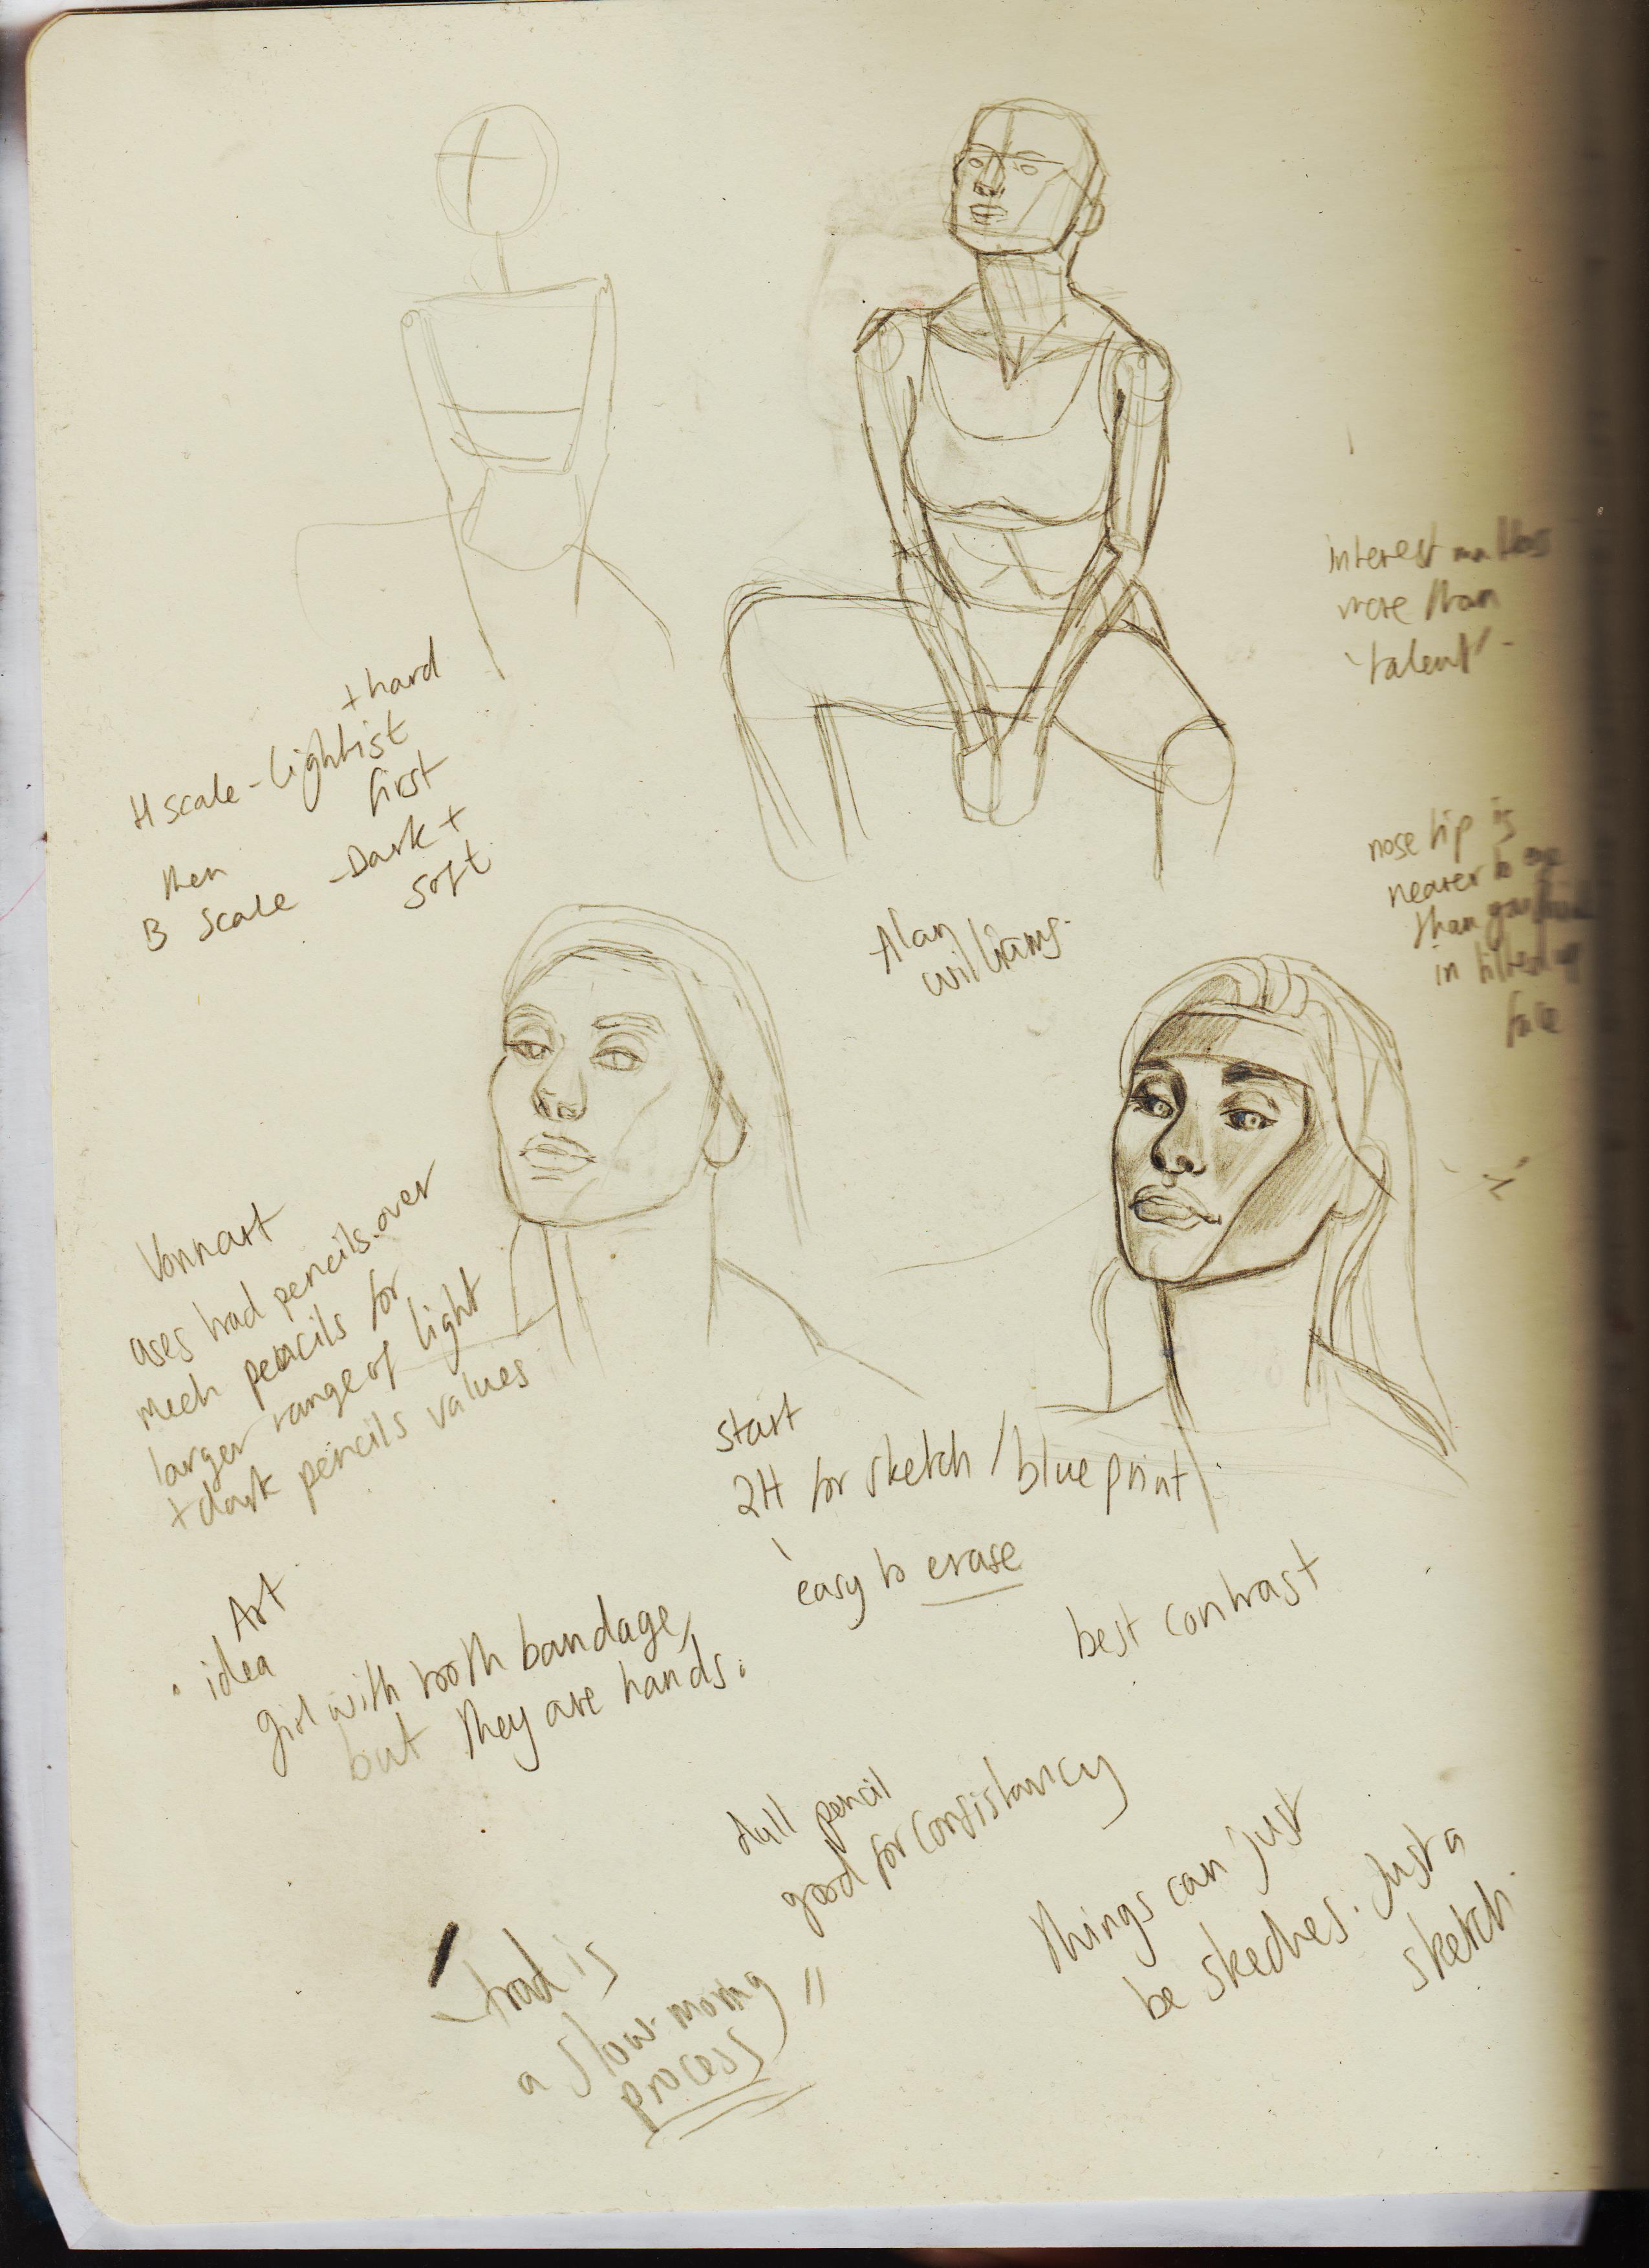 interest matters
more than
'talent' -
+ hard
H scale - lightist
first
then
B scale - Dark +
soft
nose tip is
nearer to eye
than
in tilted up
face
Alan
williams.
Vonnart
uses trad pencils over
mech pencils for
larger range of light
+ dark pencils values
start
2H for sketch / blueprint
easy to erase
best contrast
Art
idea
girl with tooth bandage,
but they are hands.
dull pencil
good for consistancy
things can just
be skeches. Just a
sketch.
trad is
a slow moving
process